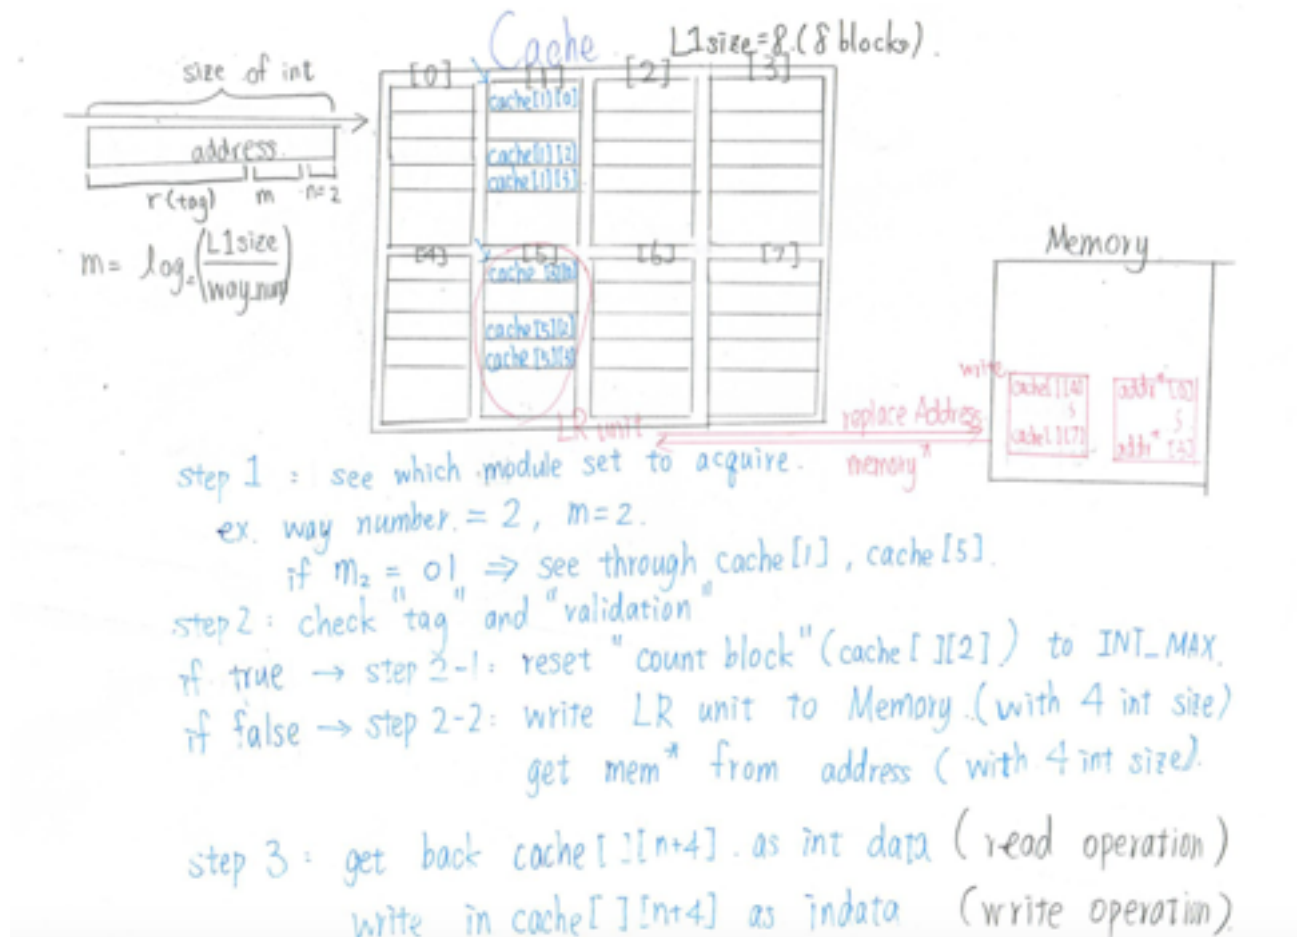 Cache
L1size=8.(8 blocks).
size of int
address.
r(tag) m n=2
m= log₂(L1size/way_num)
[0] [1] [2] [3]
cache[1][0]
cache[1][2]
cache[1][3]
[4] [5] [6] [7]
cache [5][0]
cache[5][2]
cache [5][3]
LR unit
replace Address
memory*
Memory
write
cache[][4]
s
cache[][7]
addr* [0]
s
addr* [3]
step 1 : see which module set to acquire.
ex. way number. = 2, m=2.
if m₂ = 01 ⇒ see through cache[1], cache[5].
step2: check "tag" and "validation"
if true → step 2-1: reset "count block" (cache[][2]) to INT_MAX.
if false → step 2-2: write LR unit to Memory.(with 4 int size)
get mem* from address (with 4 int size).
step 3 : get back cache[][n+4]. as int data (read operation)
write in cache[][n+4] as indata (write operation)